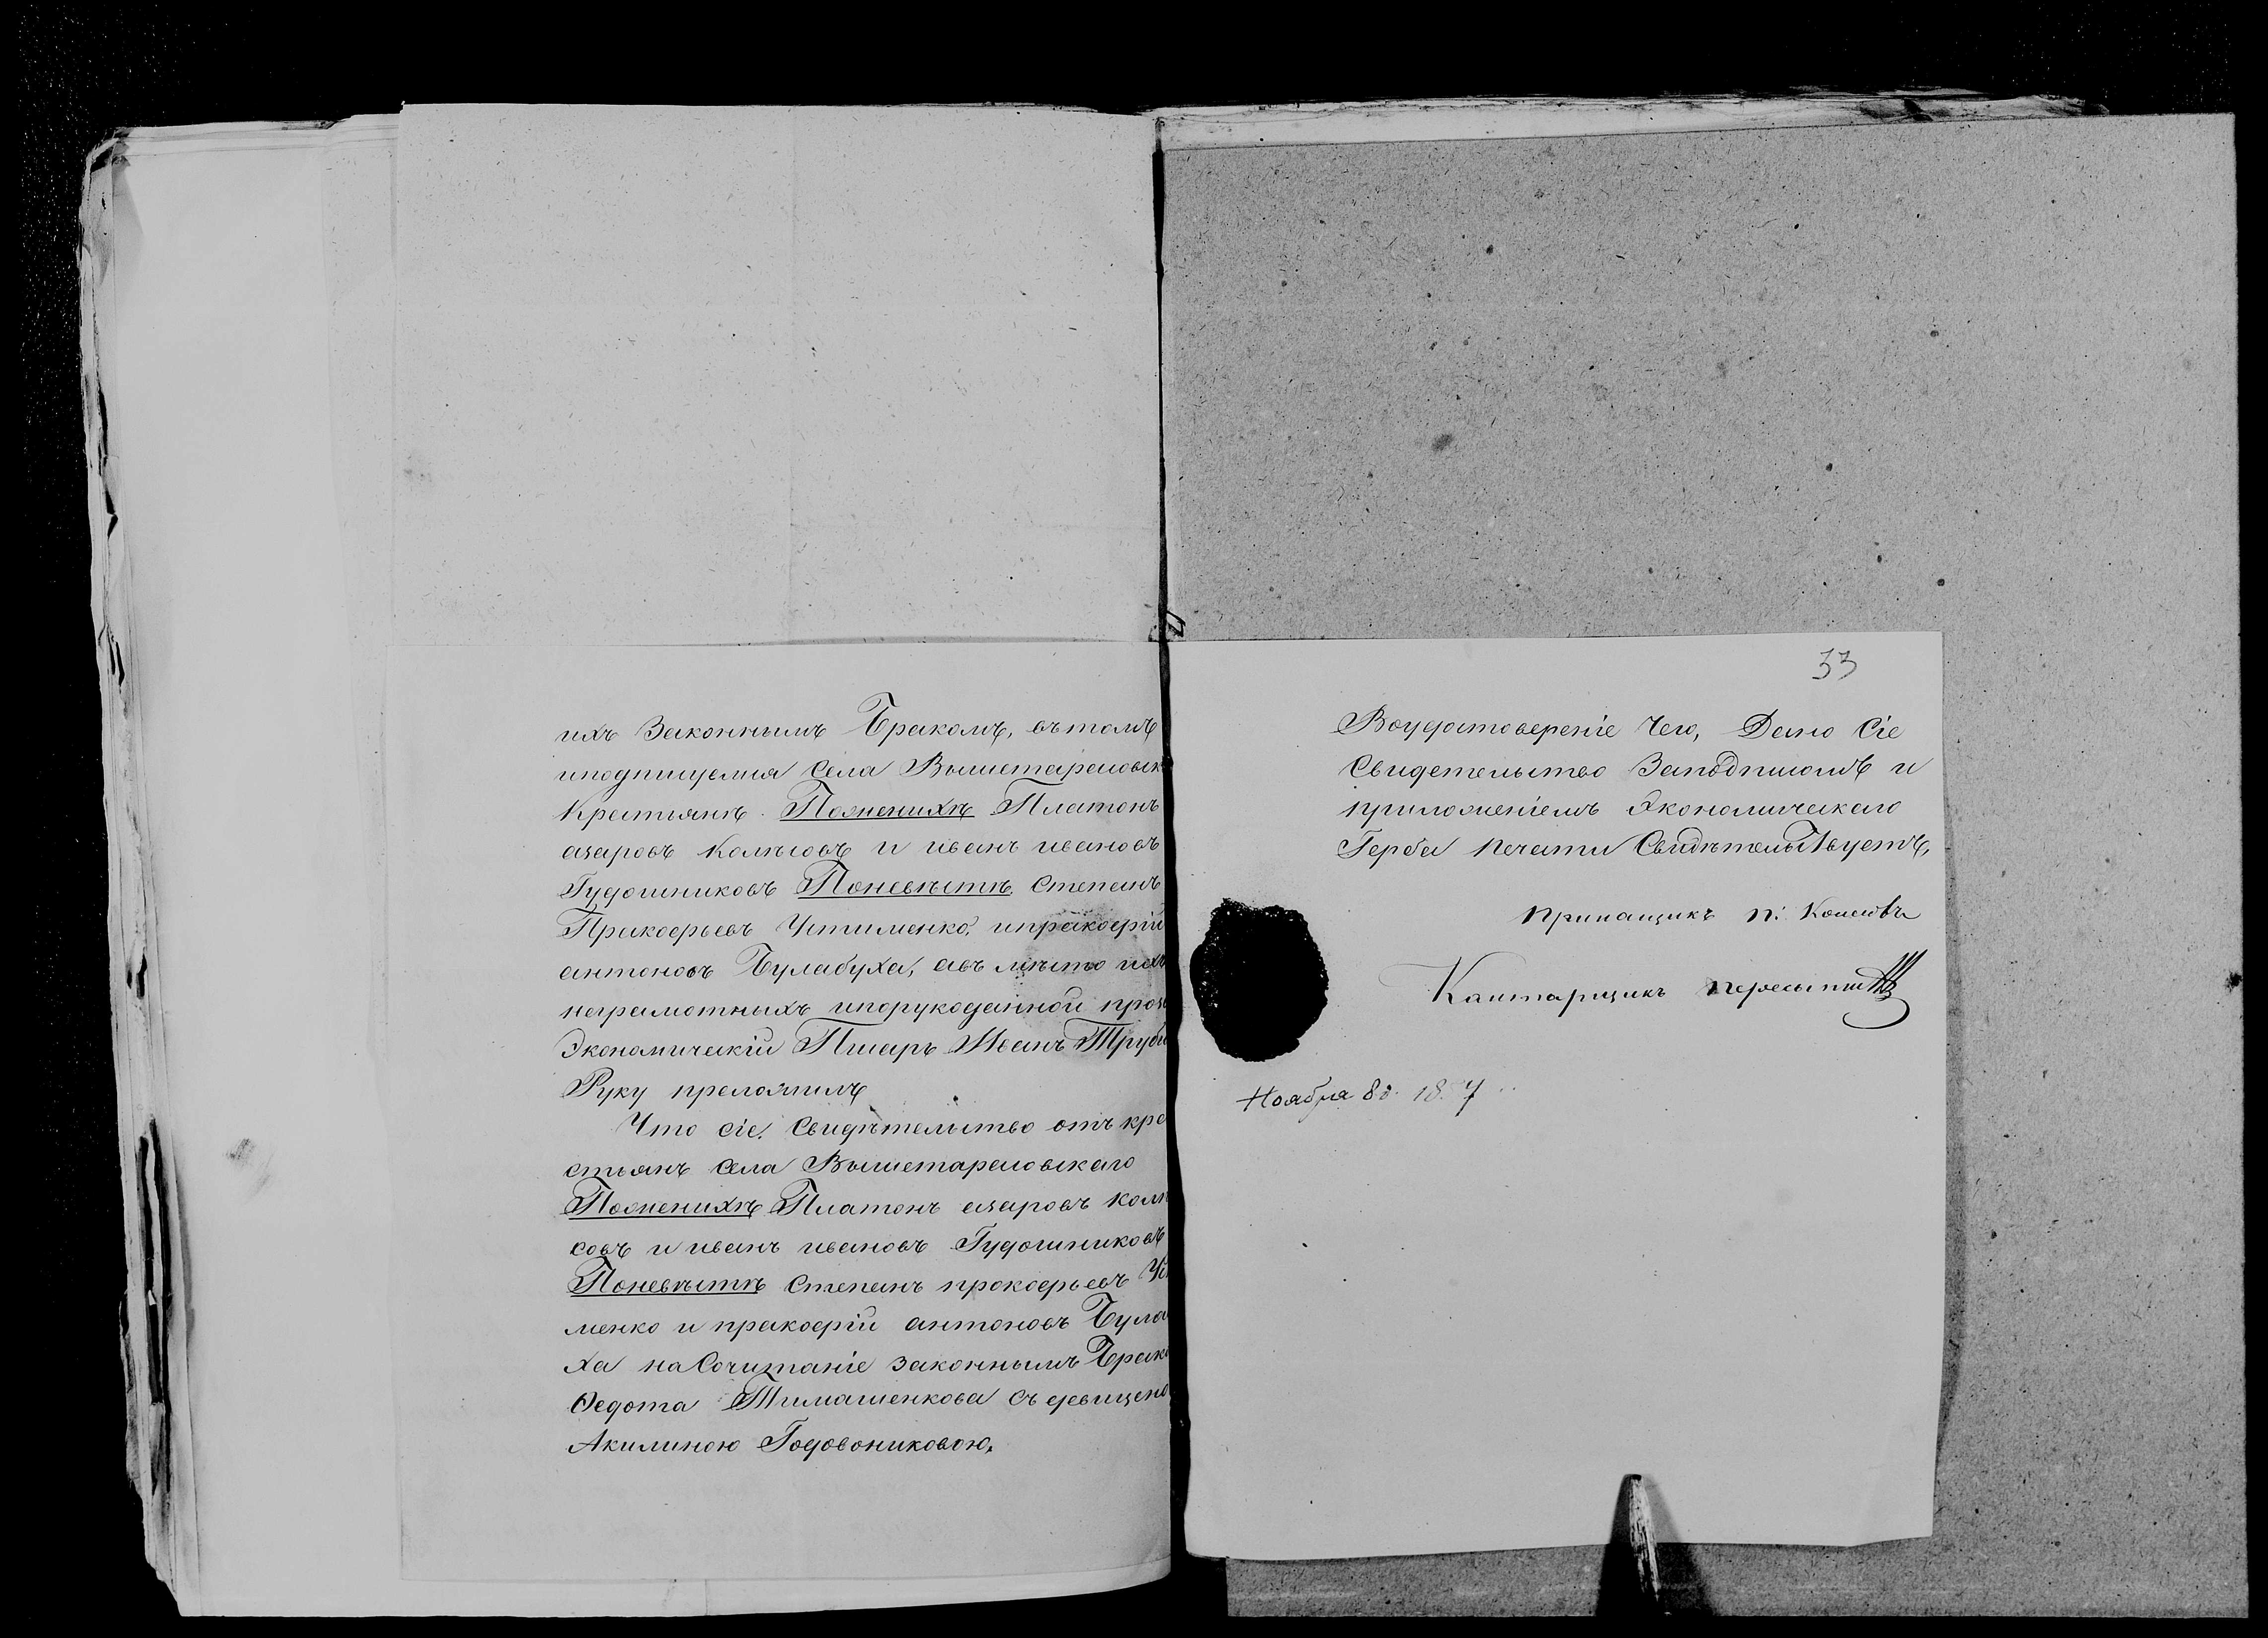 ихъ Законнымъ Бракомъ, въ томъ
иподпишемся Села Вышетарасовск
Крестьянъ. Поженихѣ Платонъ
азаровъ Колѣсовъ и иванъ ивановъ
Гудошниковъ Поневѣстѣ Степанъ
Пракофьевъ Устименко, ипракофій
антоновъ Булабуха, авъ мѣсто ихъ
неграмотныхъ ипорукоданной прозь
Экономическій Писарь Иванъ Труби
Руку преложилъ
Что сіе Свидѣтельство отъ кре
стьянъ Села Вышетарасовскаго
Поженихѣ Платонъ азаровъ Колѣ
совъ и иванъ ивановъ Гудошниковъ
Поневѣстѣ Степанъ прокофьевъ Усти
менко и пракофій антоновъ Була
ха на Сочитаніе законнымъ Брако
Ѳедота Тимашенкова съ девицею
Акилиною Годовониковою.
33
Воудостоверенiе Чего, Дано Сiе
Свидетельство Заподписомъ и
приложенiемъ Экономическаго
Герба печати Свидѣтельствуетъ,
Приващикъ П:
Кантарщикъ
Ноября 8 д. 18 7